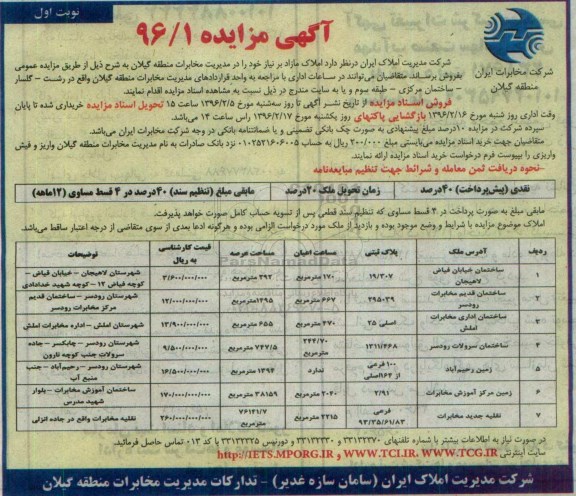 نوبت اول
آگهی مزایده ۹۶/۱
شرکت مخابرات ایران
منطقه گیلان
شرکت مدیریت املاک ایران درنظر دارد املاک مازاد بر نیاز خود را در مدیریت مخابرات منطقه گیلان به شرح ذیل از طریق مزایده عمومی
بفروش برساند. متقاضیان می‌توانند در ساعات اداری با مراجعه به واحد قراردادهای مدیریت مخابرات منطقه گیلان واقع در رشت – گلسار
– ساختمان مرکزی – طبقه سوم و یا به سایت مندرج در ذیل نسبت به مشاهده اسناد مزایده اقدام نمایند.
فروش اسناد مزایده از تاریخ نشر آگهی تا روز سه‌شنبه مورخ ۱۳۹۶/۲/۵ ساعت ۱۵ تحویل اسناد مزایده خریداری شده تا پایان
وقت اداری روز شنبه مورخ ۱۳۹۶/۲/۱۶ بازگشایی پاکتهای روز یکشنبه مورخ ۱۳۹۶/۲/۱۷ راس ساعت ۱۴ می‌باشد.
سپرده شرکت در مزایده ۱۰درصد مبلغ پیشنهادی به صورت چک بانکی تضمینی و یا ضمانتنامه بانکی در وجه شرکت مخابرات ایران می‌باشد.
متقاضیان جهت خرید اسناد مزایده می‌بایستی مبلغ ۲۰۰/۰۰۰ ریال به حساب ۰۱۰۲۵۲۱۶۰۶۰۰۵ نزد بانک صادرات به نام مدیریت مخابرات منطقه گیلان واریز و فیش
واریزی را بپیوست فرم درخواست خرید اسناد مزایده ارائه نمایند.
–نحوه دریافت ثمن معامله و شرائط جهت تنظیم مبایعه‌نامه
نقدی (پیش‌پرداخت) ۴۰درصد | زمان تحویل ملک ۲۰درصد | مابقی مبلغ (تنظیم سند) ۴۰درصد در ۴ قسط مساوی (۱۲ماهه)
مابقی مبلغ به صورت پرداخت در ۴ قسط مساوی که تنظیم سند قطعی پس از تسویه حساب کامل صورت خواهد پذیرفت.
املاک موضوع مزایده با شرایط و وضع موجود بوده و بازدید از ملک مورد درخواست الزامی بوده و هرگونه ادعا بعدی از سوی متقاضی از درجه اعتبار ساقط می‌باشد.
ردیف | آدرس ملک | پلاک ثبتی | مساحت اعیان | مساحت عرصه | قیمت کارشناسی به ریال | توضیحات
۱ | ساختمان خیابان فیاض لاهیجان | ۱۹/۳۰۷ | ۱۷۰ مترمربع | ۳۹۲ مترمربع | ۳/۶۰۰/۰۰۰/۰۰۰ | شهرستان لاهیجان – خیابان فیاض – کوچه فیاض ۱۲ – کوچه شهید خدادادی
۲ | ساختمان قدیم مخابرات رودسر | ۲۹۵۰۳۹ | ۶۶۷ مترمربع | ۱۴۹۵مترمربع | ۱۲/۰۰۰/۰۰۰/۰۰۰ | شهرستان رودسر – ساختمان قدیم مرکز مخابرات رودسر
۳ | ساختمان اداری مخابرات املش | اصلی ۲۵ | ۴۷۰ مترمربع | ۶۵۵ مترمربع | ۱۳/۹۰۰/۰۰۰/۰۰۰ | شهرستان املش – اداره مخابرات املش
۴ | ساختمان سرولات رودسر | ۱۳۱۱/۴۶۸ | ۲۴۴/۷۰ مترمربع | ۷۴۷/۵ مترمربع | ۹/۵۰۰/۰۰۰/۰۰۰ | شهرستان رودسر – چابکسر – جاده سرولات جنب کوچه نارون
۵ | زمین رحیم‌آباد | ۱۰۰ فرعی از ۱۶۴اصلی | ندارد | ۱۳۹۴ مترمربع | ۱۶/۵۰۰/۰۰۰/۰۰۰ | شهرستان رودسر – رحیم‌آباد – جنب منبع آب
۶ | زمین مرکز آموزش مخابرات | ۲/۹۱ | ۲۰۴۰ مترمربع | ۳۸۱۵۹ مترمربع | ۱۷۰/۰۰۰/۰۰۰/۰۰۰ | ساختمان آموزش مخابرات – بلوار شهید مدرس
۷ | نقلیه جدید مخابرات | فرعی ۹۳/۳۵/۶۱/۸۳ | ۲۲۱۵ مترمربع | ۷۶۱۴۱/۷ مترمربع | ۲۶۰/۰۰۰/۰۰۰/۰۰۰ | نقلیه مخابرات واقع در جاده انزلی
در صورت نیاز به اطلاعات بیشتر با شماره تلفنهای ۳۳۱۳۲۲۷۰ – ۳۳۱۳۲۲۳۰ و دورنویس ۳۳۱۳۲۲۲۵ با کد ۰۱۳ تماس حاصل فرمائید.
سایت اینترنتی http://IETS.MPORG.IR و WWW.TCI.IR، WWW.TCG.IR
شرکت مدیریت املاک ایران (سامان سازه غدیر) – تدارکات مدیریت مخابرات منطقه گیلان